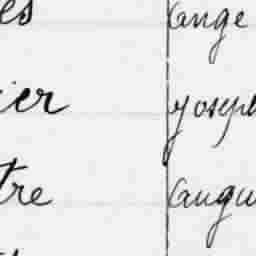 es ange
ier yosep
tre augu